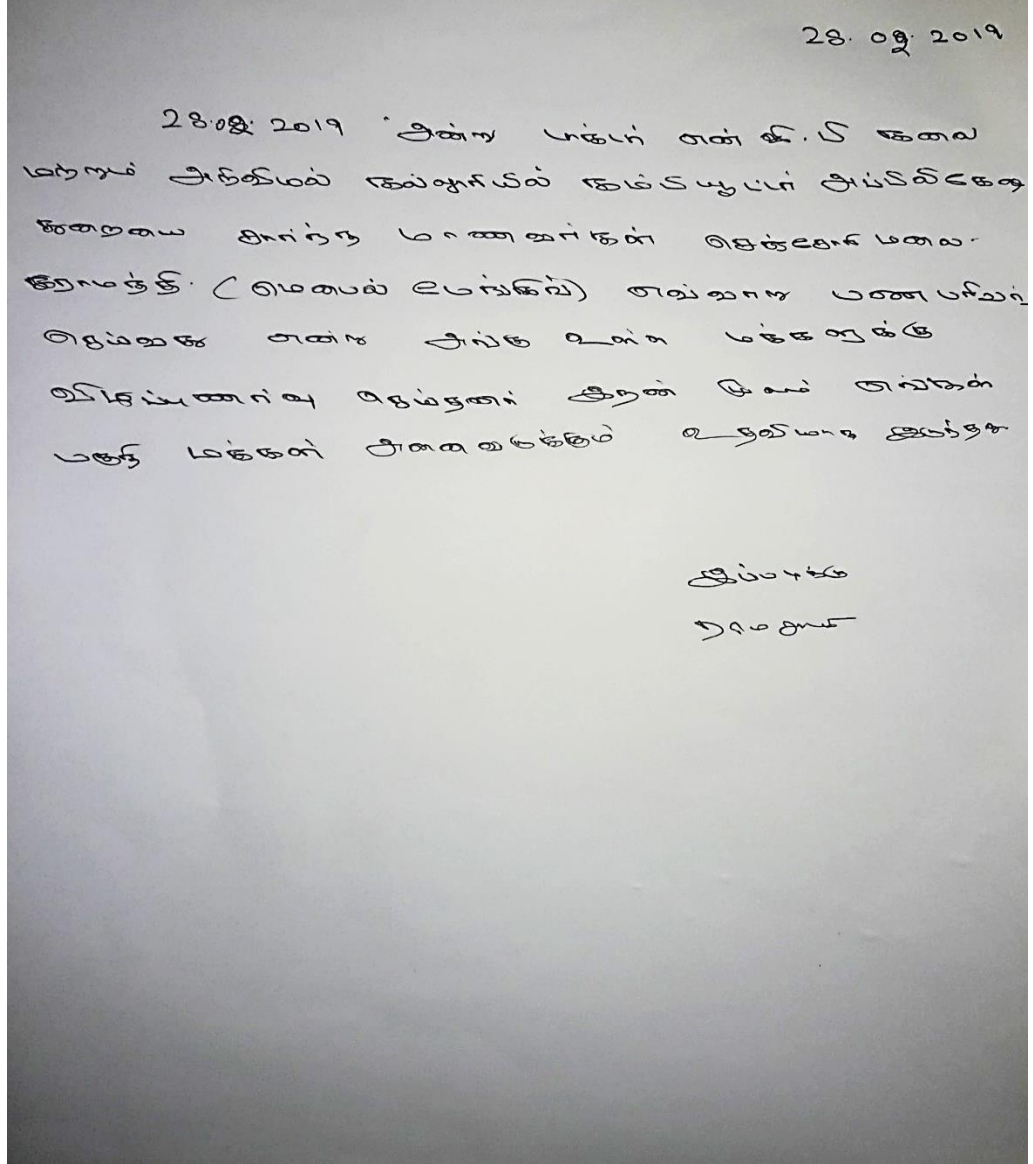 28.08.2019
28.08.2019 அன்று டாக்டர் என் ஜி.பி கலை
மற்றும் அறிவியல் கல்லூரியில் கம்ப்யூட்டர் அப்பிலிகேஷ
துறையை சார்ந்த மாணவர்கள்
(மொபைல் பேங்கிங்) எவ்வாறு பண பரிவர்
செய்வது என்று அங்கு உள்ள மக்களுக்கு
விழிப்புணர்வு செய்தனர் இதன் மூலம் எங்கள்
பகுதி மக்கள் அனைவருக்கும் உதவியாக இருந்தது
இப்படிக்கு
ராமசாமி